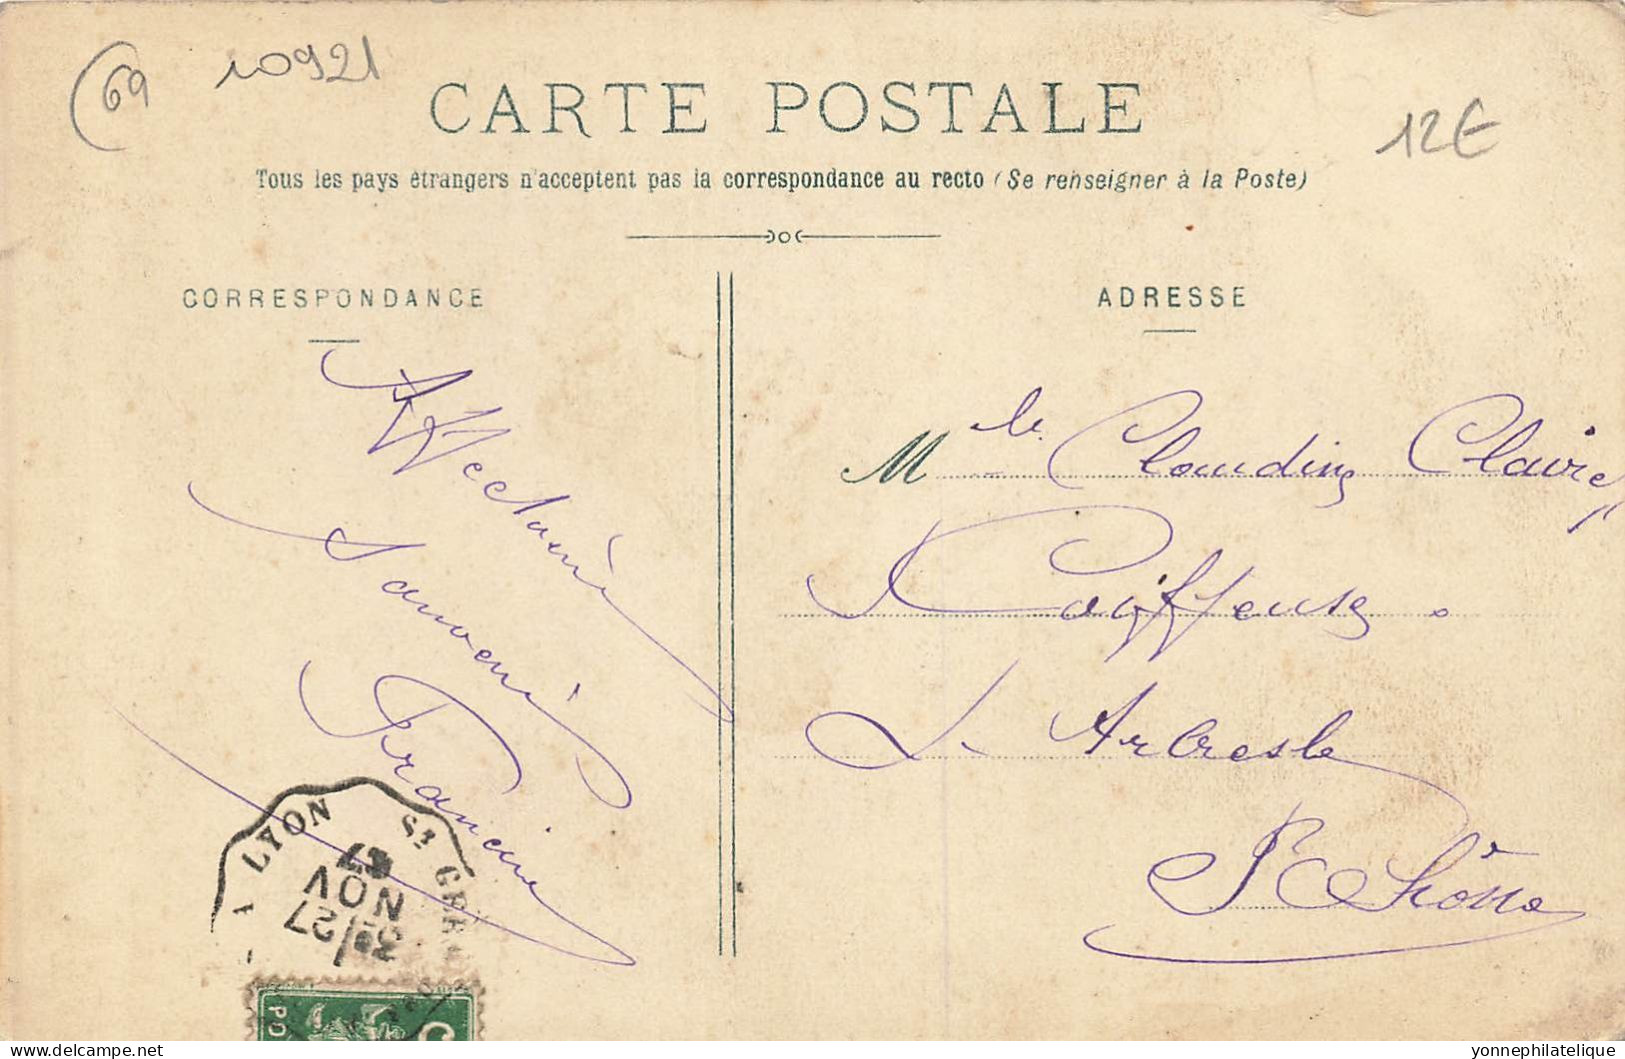 69
10921
CARTE POSTALE
12€
Tous les pays étrangers n'acceptent pas la correspondance au recto (Se renseigner à la Poste)
CORRESPONDANCE
Affectueux
Souvenir
Francine
ADRESSE
Mlle Claudine Claire
Coiffeuse.
L'Arbresle
Rhône
A LYON
ST GER
3e/27
NOV
07
PO
5
Delcampe.net
yonnephilatelique